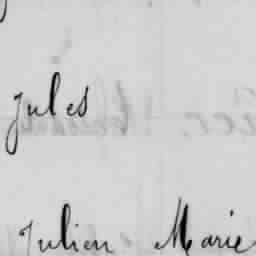 Jules
Julien Marie